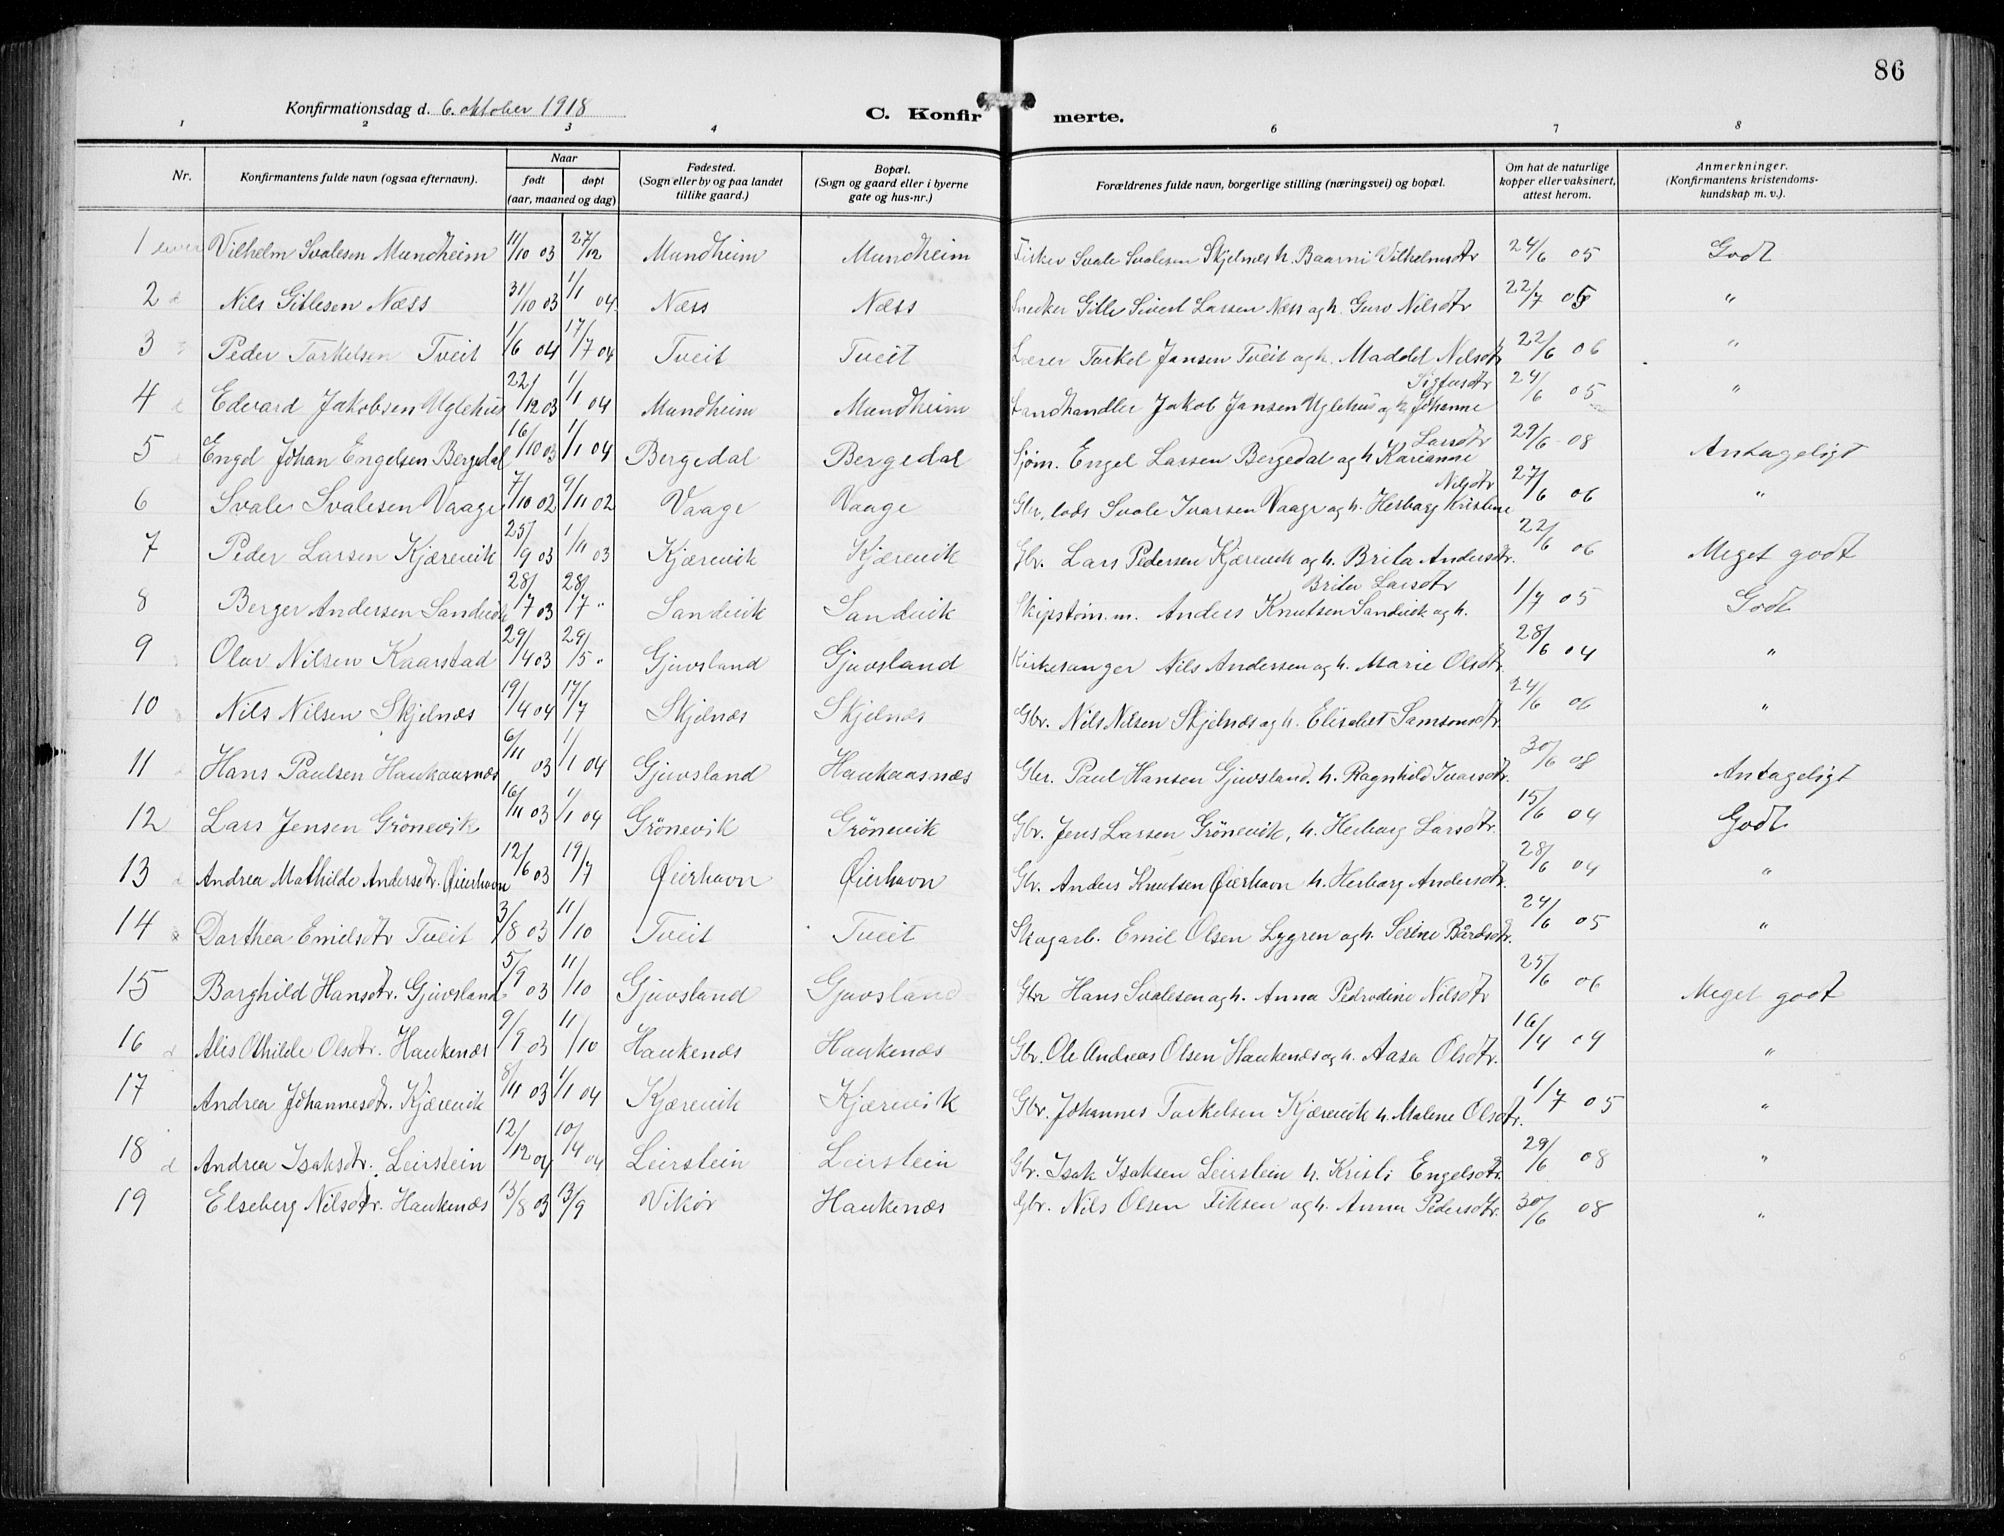 86
Konfirmationsdag d. 6. oktober 1918
C. Konfir merte.
1 2 3 4 5 6 7 8
Nr. Konfirmantens fulde navn (ogsaa efternavn). Naar født døpt (aar, maaned og dag) Fødested. (Sogn eller by og paa landet tillike gaard.) Bopæl. (Sogn og gaard eller i byerne gate og hus-nr.) Forældrenes fulde navn, borgerlige stilling (næringsvei) og bopæl. Om hat de naturlige kopper eller vaksinert, attest herom. Anmerkninger. (Konfirmantens kristendoms-kundskap m. v.).
1 Vilhelm Svalesen Mundheim 11/10 03 27/12 Mundheim Mundheim Fisker Svale Svalesen Skjelnæs h. Baarni Vilhelmsdtr 24/6 05 Godt
2 Nils Gitlesen Næss 31/10 03 1/1 04 Næss Næss Snedker Gitle Sivert Larsen Næss og h. Guro Nilsdtr 22/7 05 "
3 Peder Torkelsen Tveit 1/6 04 17/7 04 Tveit Tveit Lærer Torkel Jansen Tveit og h. Maddel Nilsdtr 22/6 06 "
4 Edvard Jakobsen Uglehus 22/12 03 1/1 04 Mundheim Mundheim Landhandler Jakob Jansen Uglehus og h. Johanne Sigfusdtr 24/6 05 "
5 Engel Johan Engelsen Bergedal 16/10 03 1/1 04 Bergedal Bergedal Sjøm. Engel Larsen Bergedal og h. Karianne Larsdtr 29/6 08 Antageligt
6 Svale Svalesen Vaage 7/10 02 9/11 02 Vaage Vaage Gbr, lods Svale Ivarsen Vaage og h. Herborg Kristine Nilsdtr 27/6 06 "
7 Peder Larsen Kjærevik 25/9 03 1/11 03 Kjærevik Kjærevik Gbr. Lars Pedersen Kjærevik og h. Brita Andersdtr. 22/6 06 Meget godt
8 Berger Andersen Sandvik 28/7 03 28/7 " Sandvik Sandvik Skipstøm.m. Anders Knutsen Sandvik og h. Brita Larsdtr 1/7 05 Godt
9 Olav Nilsen Kaarstad 29/4 03 29/5 " Gjuvsland Gjuvsland Kirkesanger Nils Andersen og h. Marie Olsdtr. 28/6 04 "
10 Nils Nilsen Skjelnæs 19/4 04 17/7 Skjelnæs Skjelnæs Gbr. Nils Nilsen Skjelnæs og h. Elisabet Samsonsdtr. 24/6 06 "
11 Hans Paulsen Haukaasnæs 6/11 03 1/1 04 Gjuvsland Haukaasnæs Gbr. Paul Hansen Gjuvsland. h. Ragnhild Ivarsdtr. 30/6 08 Antageligt
12 Lars Jensen Grönevik 16/11 03 1/1 04 Grönevik Grönevik Gbr. Jens Larsen Grönevik, h. Herborg Larsdtr. 15/6 04 Godt
13 Andrea Mathilde Andersdtr. Øierhavn 12/6 03 19/7 Øierhavn Øierhavn Gbr. Anders Knutsen Øierhavn h. Herborg Andersdtr. 28/6 04 "
14 Dorthea Emilsdtr Tveit 3/8 03 11/10 Tveit Tveit Skogarb. Emil Olsen Lygren og h. Serine Bårdsdtr. 24/6 05 "
15 Borghild Hansdtr. Gjuvsland 5/9 03 11/10 Gjuvsland Gjuvsland Gbr Hans Svalesen og h. Anna Pedrodine Nilsdtr 25/6 06 Meget godt
16 Alis Othilde Olsdtr. Haukenæs 9/9 03 11/10 Haukenæs Haukenæs Gbr. Ole Andreas Olsen Haukenæs og h. Aasa Olsdtr. 16/4 09 "
17 Andrea Johannesdtr. Kjærevik 8/11 03 1/1 04 Kjærevik Kjærevik Gbr. Johannes Torkelsen Kjærevik h. Malene Olsdtr. 1/7 05 "
18 Andrea Isaksdtr. Leirstein 12/12 04 10/4 04 Leirstein Leirstein Gbr. Isak Isaksen Leirstein h. Kristi Engelsdtr. 29/6 08 "
19 Elseberg Nilsdtr. Haukenæs 13/8 03 13/9 Vikör Haukenæs Gbr. Nils Olsen Fiksen og h. Anna Pedersdtr. 30/6 08 "